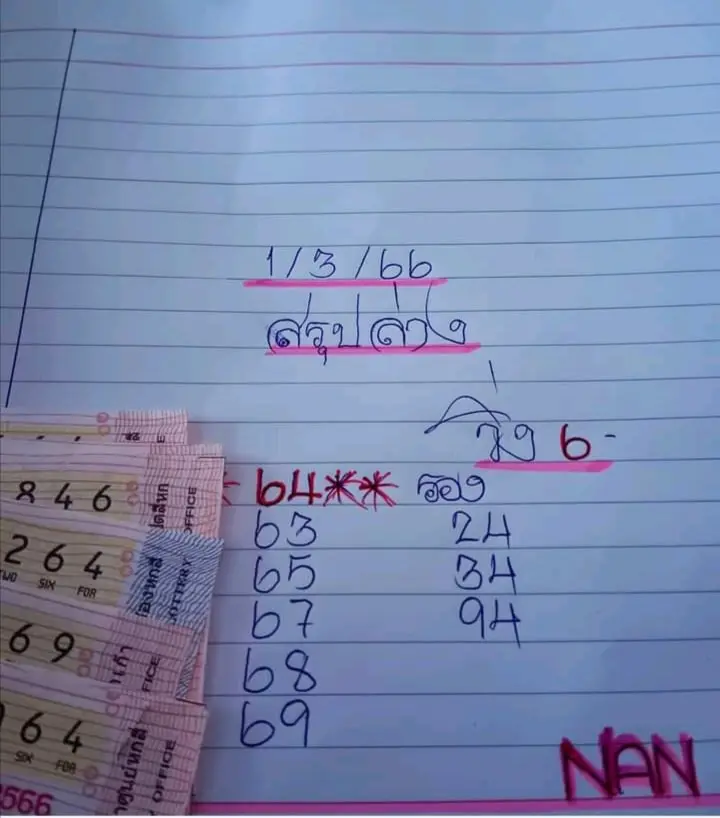 1/3/66
สรุปล่าง
วิ่ง 6-
* 64** รอง
63 24
65 34
67 94
68
69
NAN
846
OFFICE
264
TWO SIX FOR
LOTTERY
69
OFFICE
64
SIX FOR
OFFICE
2566